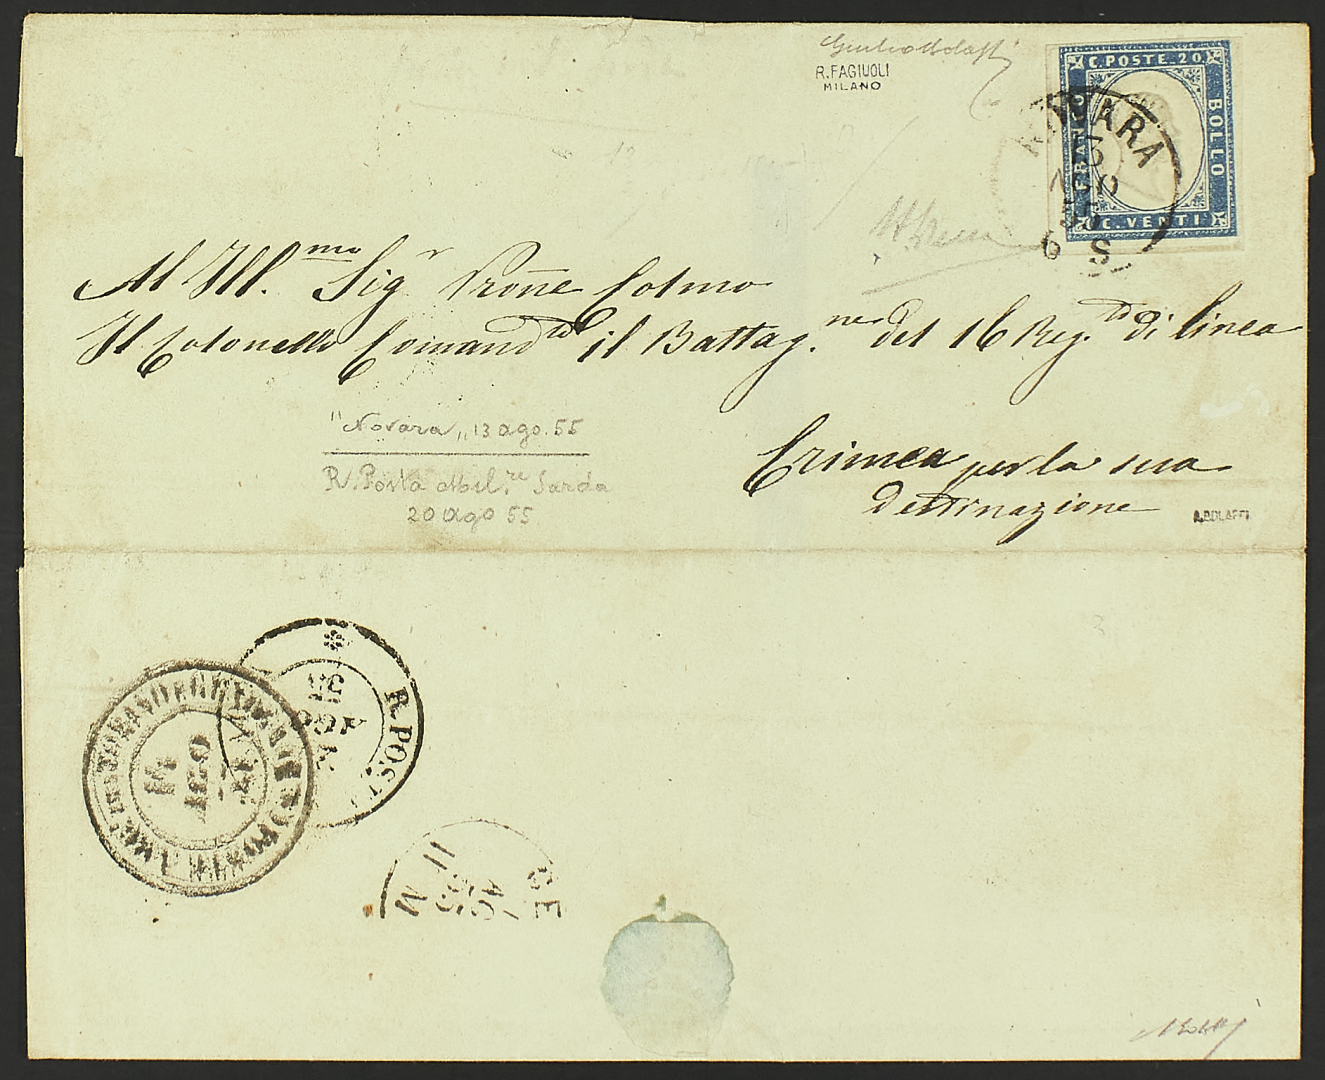 Giulio Bolaffi
R. FAGIUOLI
MILANO
C. POSTE. 20
BOLLO
C. VENTI
NOVARA
13
AGO
55
6 S
Al Ill.mo Sig.r Colmo
Il Colonello Comand.te il Battag.ne del 16 Reg.to di linea
Crimea per la sua
destinazione
"Novara" 13 ago. 55
R. Posta Mil.re Sarda
20 ago 55
A. BOLAFFI
R. POS
AGO
AGO
GE
AG
55
11 M